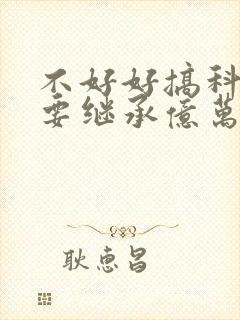 不好好搞科
要继承億萬
耿惠昌